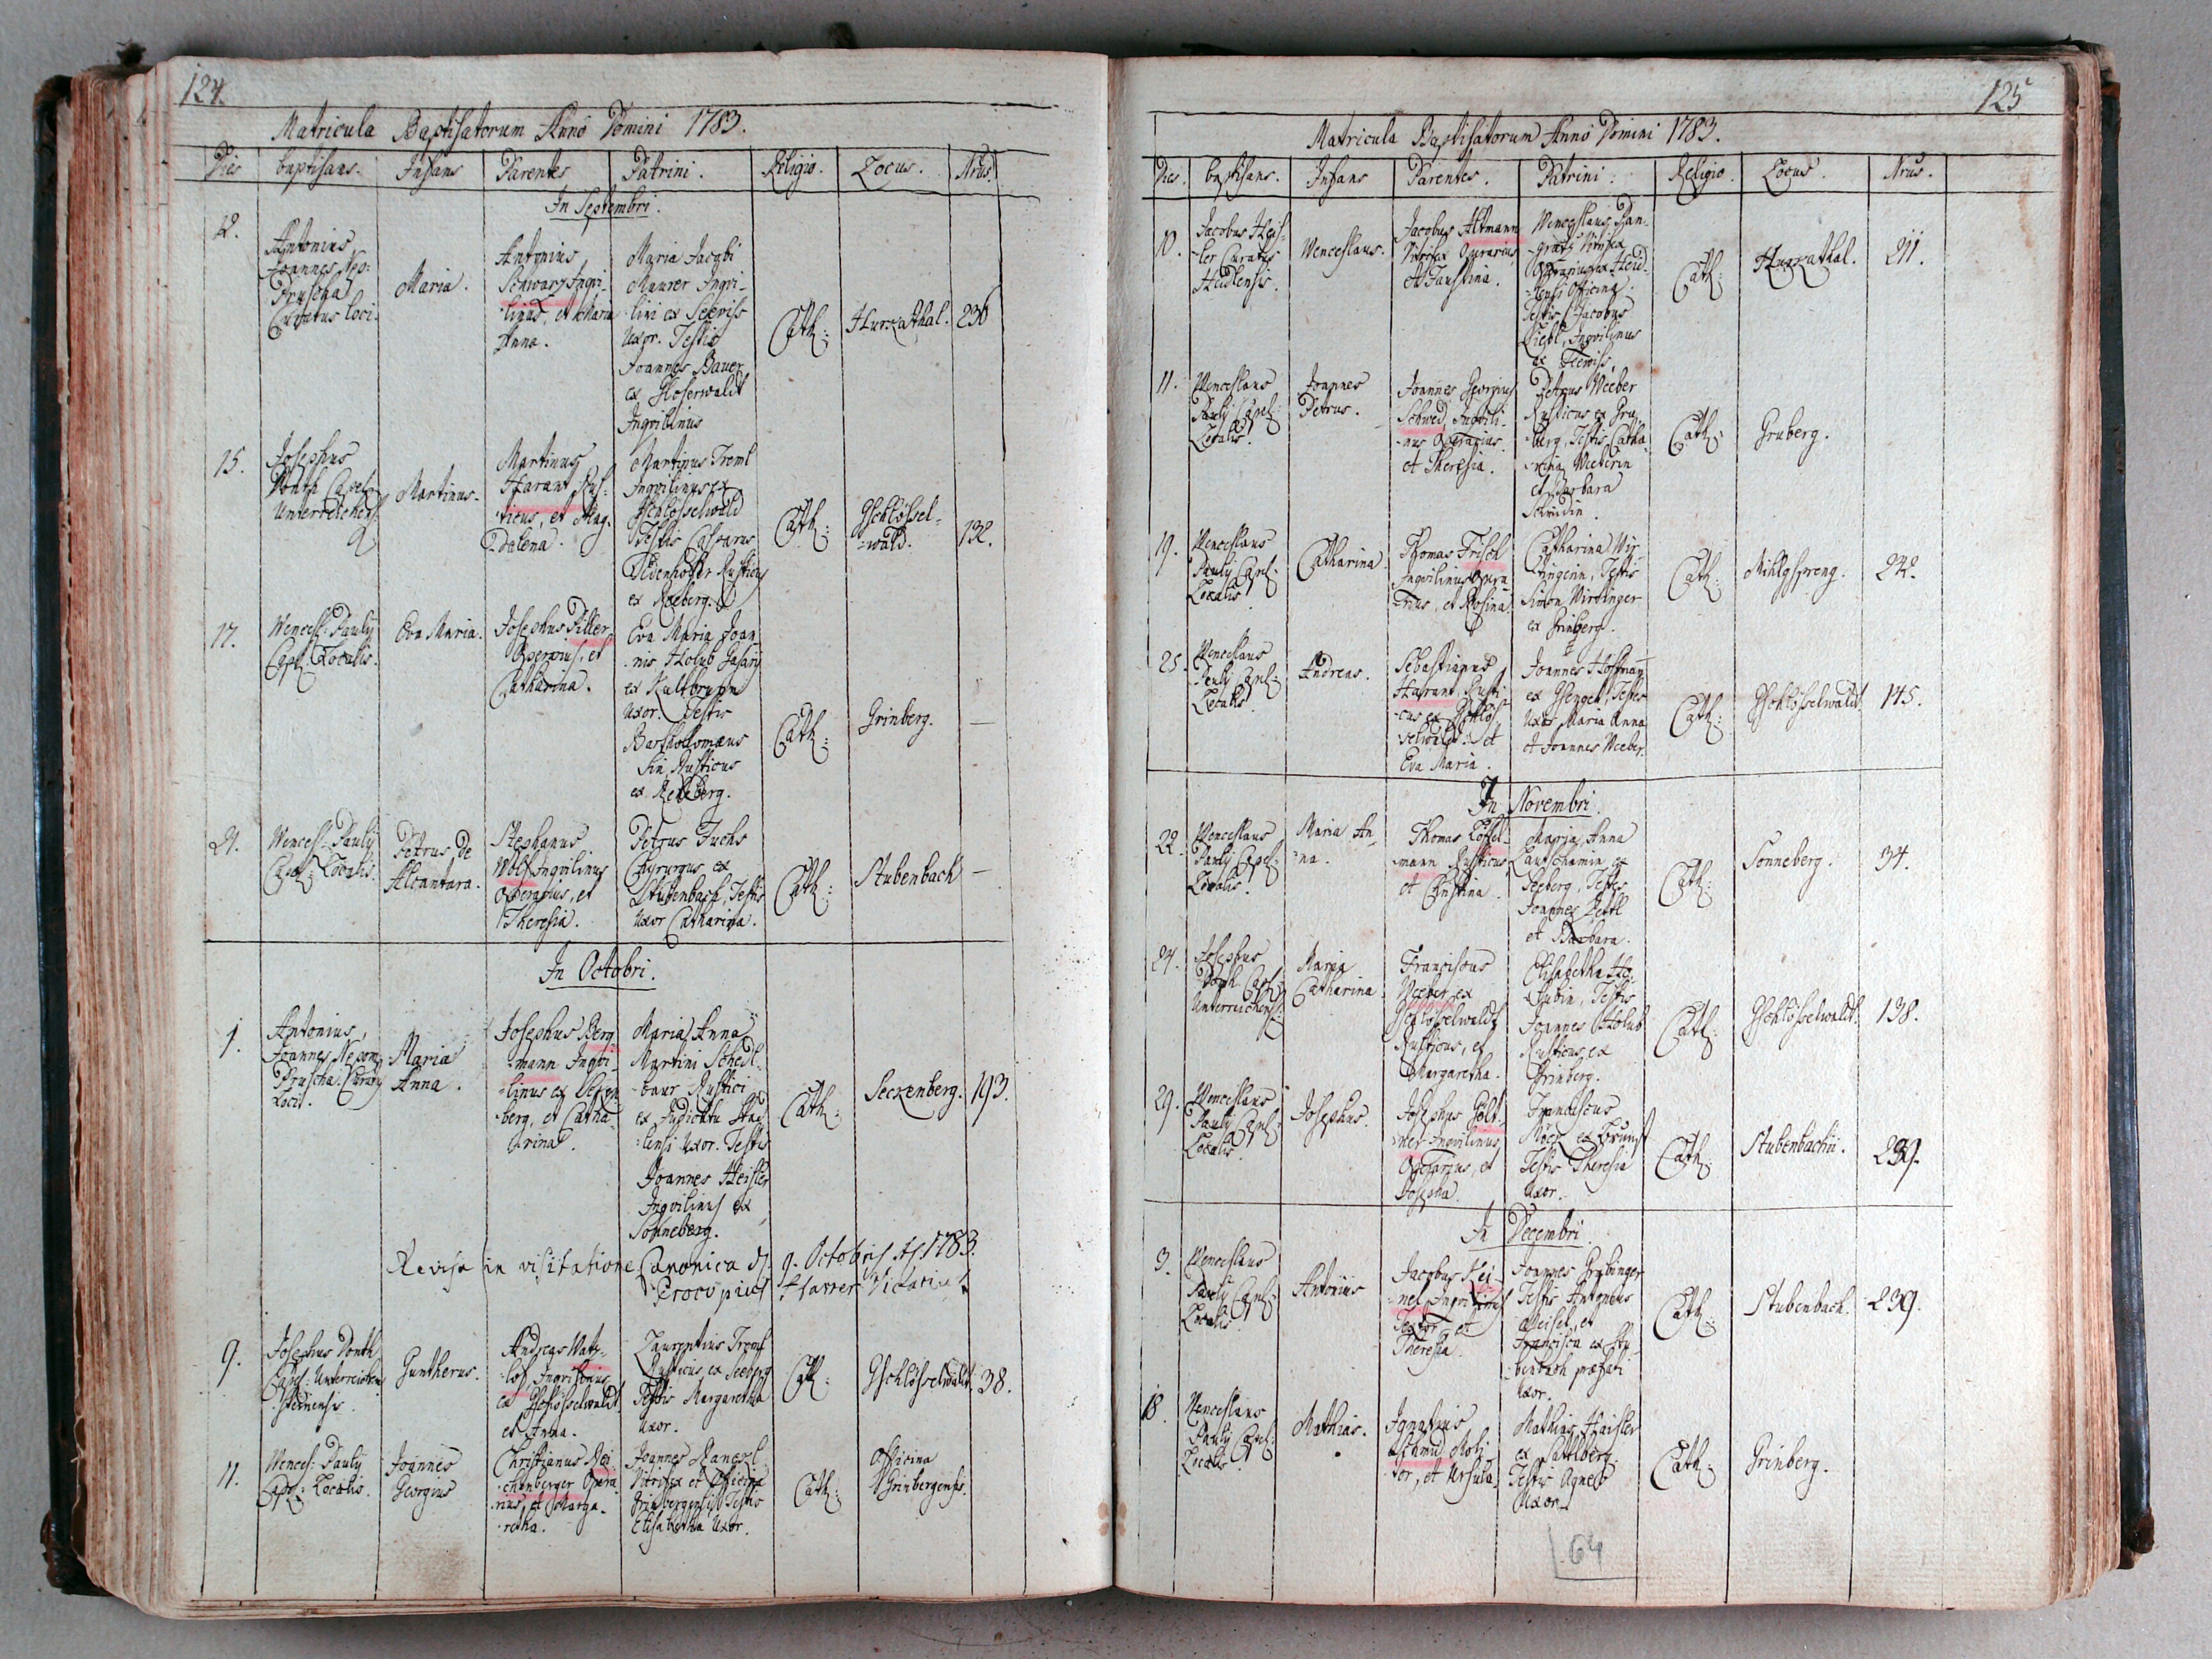 124.
Matricula Baptisatorum Anno Domini 1783.
Dies baptisans. Infans Parentes Patrini. Religio. Locus. Nrus.
In Septembri.
12.
Antonius
Joannes Nep:
Pruscha
Curatus loci.
Maria.
Antonius
Schwarz Inqvi-
linus, et Maria
Anna.
Maria Jacobi
Maurer Inqvi-
lini ex Seewiss
Uxor. Testis
Joannes Bauer
ex Hoserwaldt
Inqvilinus
Cath:
Hurkathal.
236
15.
Josephus
Donth Capel:
Unterreichens:
Martinus.
Martinus
Harant Rus-
ticus, et Mag-
dalena.
Martinus Treml
Inqvilinus ex
Gschlösselwald
Testis Casparus
Rusticus
ex Reeberg.
Cath:
Gschlössel-
wald.
132.
17.
Wencesl: Pauly
Capel: Localis.
Eva Maria.
Josephus Piller
Operarius, et
Catharina.
Eva Maria Joan-
nis Holub
ex Kaltbrunn
Uxor. Testis
Bartholomæus
Sin Rusticus
ex Rehberg.
Cath:
Grinberg.
—
21.
Wencesl: Pauly
Capel: Localis.
Petrus de
Alcantara.
Stephanus
Wolf Inqvilinus
operarius, et
Theresia.
Petrus Fuchs
Chyrurgus ex
Stubenbach, Testis
Uxor Catharina.
Cath:
Stubenbach
—
In Octobri.
1.
Antonius,
Joannes Nepom:
Pruscha Curatus
Loci.
Maria
Anna.
Josephus Berg-
mann Inqvi-
linus ex Secken-
berg, et Catha-
rina.
Maria Anna
Martini Schedl-
baur Rustici
ex Judicatu Sta-
lensi Uxor. Testis
Joannes Heisler
Inqvilinus ex
Sonneberg.
Cath:
Seckenberg.
193.
Revisa in visitatione Canonica d. 9. Octobris 1783.
Procopius Harrer Vicarius
9.
Josephus Donth
Capel: Unterreichen-
steinensis
Guntherus.
Andreas Watz-
lof Inqvilinus
ex Gschlösselwaldt
et Anna.
Laurentius Treml
Rusticus ex Seeberg
Testis Margaretha
Uxor.
Cath:
Gschlösselwaldt
38.
11.
Wencesl: Pauly
Capel: Localis.
Joannes
Georgius
Christianus Rei-
chenberger Opera-
rius, et Marga-
retha.
Joannes
Vitrifex et Officina
Grinbergensi, Testis
Elisabetha Uxor.
Cath:
Officina
Grinbergensis.
125
Matricula Baptisatorum Anno Domini 1783.
Dies. baptisans. Infans Parentes. Patrini. Religio. Locus. Nrus.
10.
Jacobus Heis-
ler Curatus
Heidlensis.
Wenceslaus.
Jacobus Altmann
Vitrifex Operarius
et Faustina.
Wenceslaus Pan-
gratz Vitrifex
Operarius ex Heid-
lensi Officina.
Testis Jacobus
Liebl, Inqvilinus
ex Seewiss.
Cath:
Hurkathal.
211.
11.
Wenceslaus
Pauly Capel:
Localis.
Joannes
Petrus.
Joannes Georgius
Schwed, Inqvili-
nus Operarius
et Theresia.
Petrus Weeber
Rusticus ex Gru-
berg, Testis Catha-
rina Weeberin
et Barbara
Schwedin.
Cath:
Gruberg.
19.
Wenceslaus
Pauly Capel:
Localis.
Catharina.
Thomas Frisch
Inqvilinus Opera-
rius, et Rosina.
Catharina Wir-
tingerin, Testis
Simon Wirtinger
ex Grinberg.
Cath:
Mihlgspreng.
242.
25.
Wenceslaus
Pauly Capel:
Localis.
Andreas.
Sebastianus
Harant, Rusti-
cus ex Gschlös-
selwald. et
Eva Maria.
Joannes Hoffman
ex Gsenget, Testes
Uxor Maria Anna
et Joannes Weeber.
Cath:
Gschlösselwaldt.
145.
In Novembri.
22.
Wenceslaus
Pauly Capel:
Localis.
Maria An-
na.
Thomas Löffel-
mann Rusticus
et Christina.
Maria Anna
Lautschamin ex
Seeberg, Testes
Joannes Zettl
et Barbara.
Cath:
Sonneberg.
34.
24.
Josephus
Donth Capel:
Unterreichens:
Maria
Catharina
Franciscus
Weeber ex
Gschlösselwaldt
Rusticus, et
Margaretha.
Elisabetha Ho-
lubin, Testis
Joannes Holub
Rusticus ex
Grinberg.
Cath:
Gschlösselwaldt.
138.
29.
Wenceslaus
Pauly Capel:
Localis.
Josephus.
Josephus Gölt-
ner Inqvilinus,
Operarius, et
Josepha.
Franciscus
ex Brunst
Testis Theresia
Uxor.
Cath:
Stubenbachii.
239.
In Decembri.
3.
Wenceslaus
Pauly Capel:
Localis.
Antonius
Jacobus Kei-
nel, Inqvilinus
Textor et
Theresia.
Joannes Grubinger
Testis Antonius
Weisel, et
Francisca ex Stu-
benbach præfati
Uxor.
Cath:
Stubenbach.
239.
18.
Wenceslaus
Pauly Capel:
Localis
Mathias.
Ignatius
Schmid Moli-
tor, et Ursula.
Mathias Haisler
ex Pattlberg.
Testis Agnes
Uxor
Cath:
Grinberg.
64